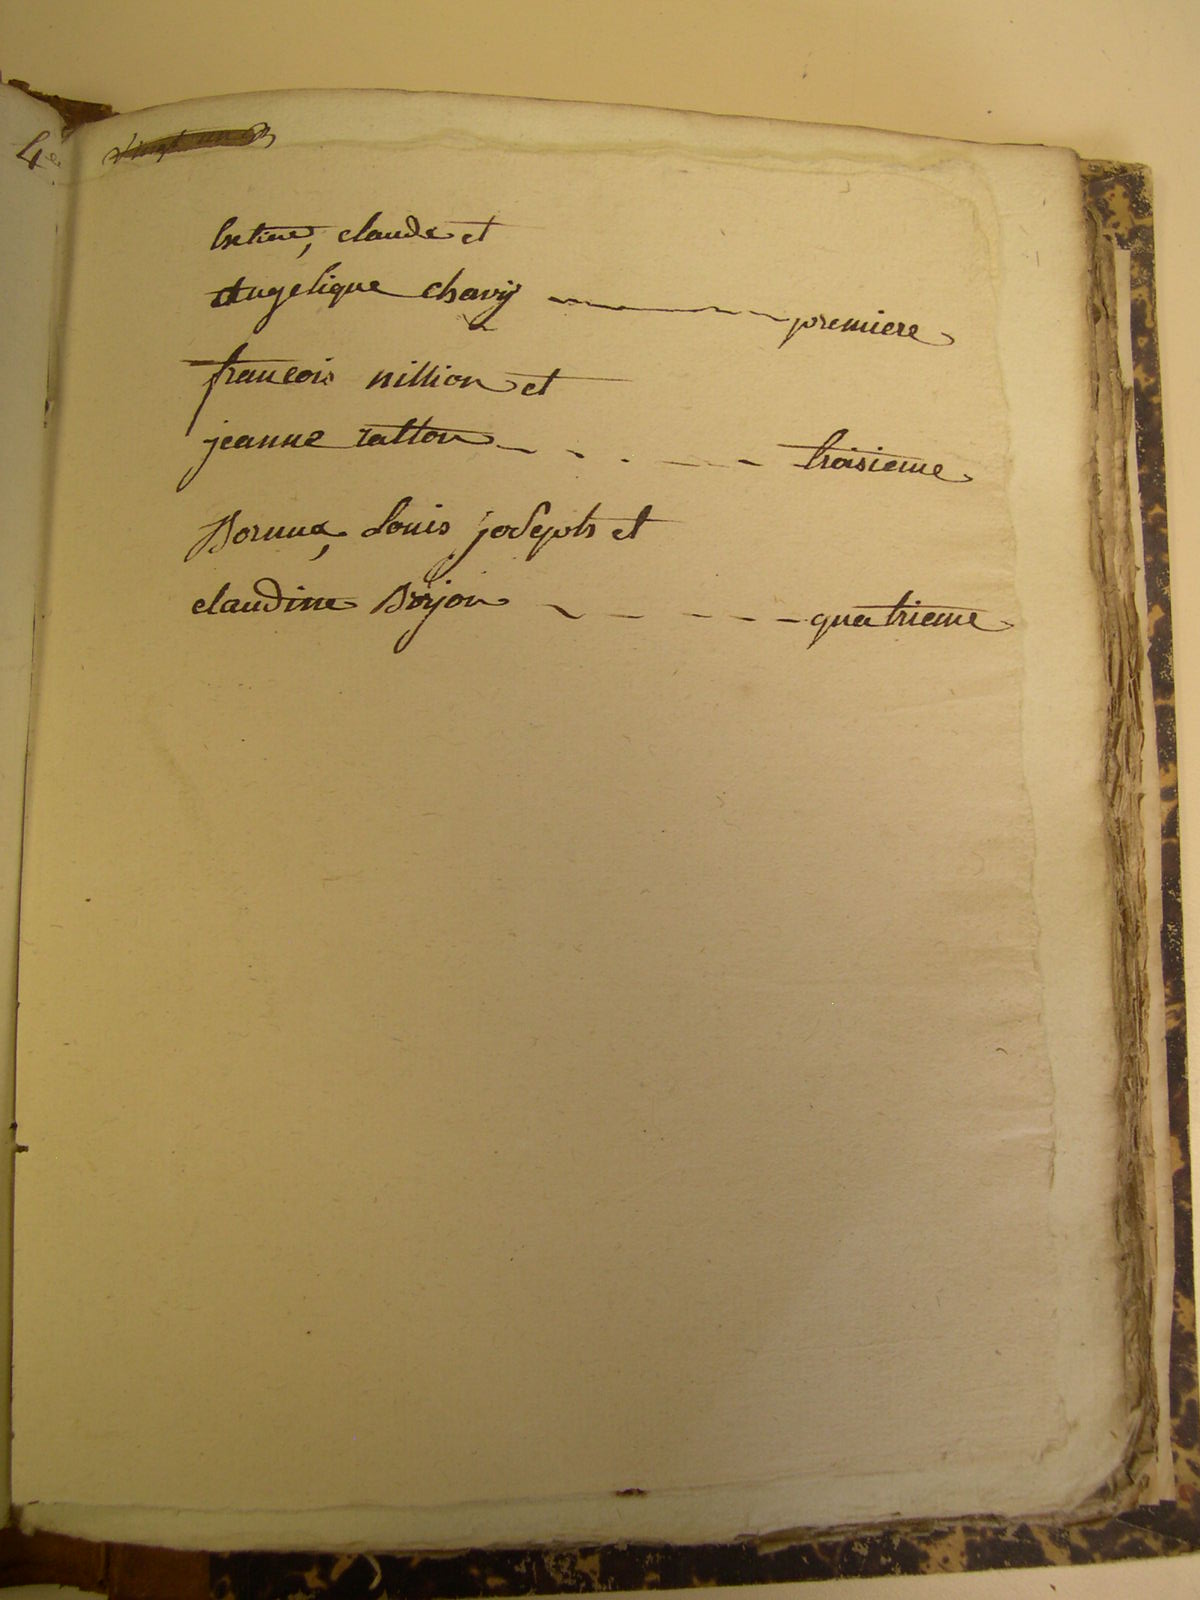 claude et
Angelique chavy premiere
francois million et
jeanne ratton troisieme
Louis joseph et
claudine Bojon quatrieme